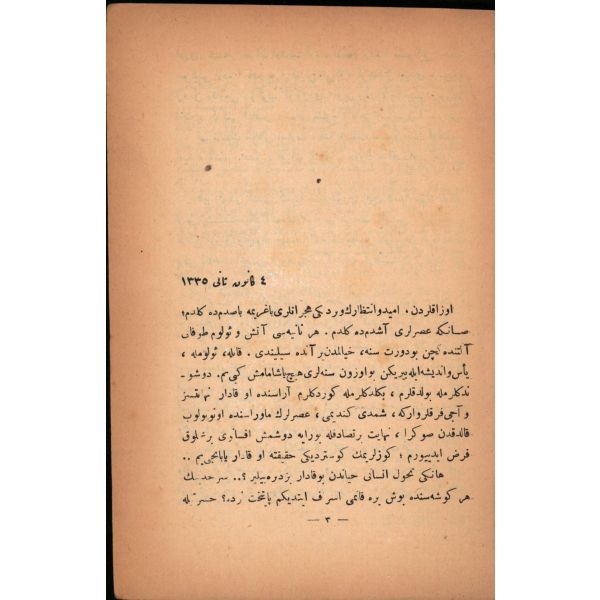 ٤ كانون ثانی ١٣٣٥
اوزاقلردن، اميد و انتظارك ويرديكی هجرانلری باغريمه باصدم ده كلدم؛
صانكه عصرلری آشدم ده كلدم. هر ثانيه سی آتش و ئولوم طوفانی
آلتنده كچن بو دورت سنه، خيالمدن بر آنده سيليندی. قانله، ئولومله،
يأس و انديشه ايله پيريكن بو اوزون سنه لری هيچ ياشامامش كبی يم. دوشو ـ
ندكلرمله بولدقلرم، بكلدكلرمله كوردكلرم آراسنده او قادار نهايتسز
و آجی فرقلر وار كه، شمدی كنديمی، عصرلرك ماوراسنده اونوتولوب
قالدقدن صوكرا، نهايت بر تصادفله بورايه دوشمش افسانوی بر مخلوق
فرض ايدييورم؛ كوزلريمك كوستردیكی حقيقته او قادار يابانجی يم ..
هانكی تحول انسانی حياتدن بو قادار بزدره بيلير؟ .. سرحدك
هر كوشه سنده بوش يره قانمی اسراف ايتديكم پايتخت نرده؟ حسرتله
— ٣ —